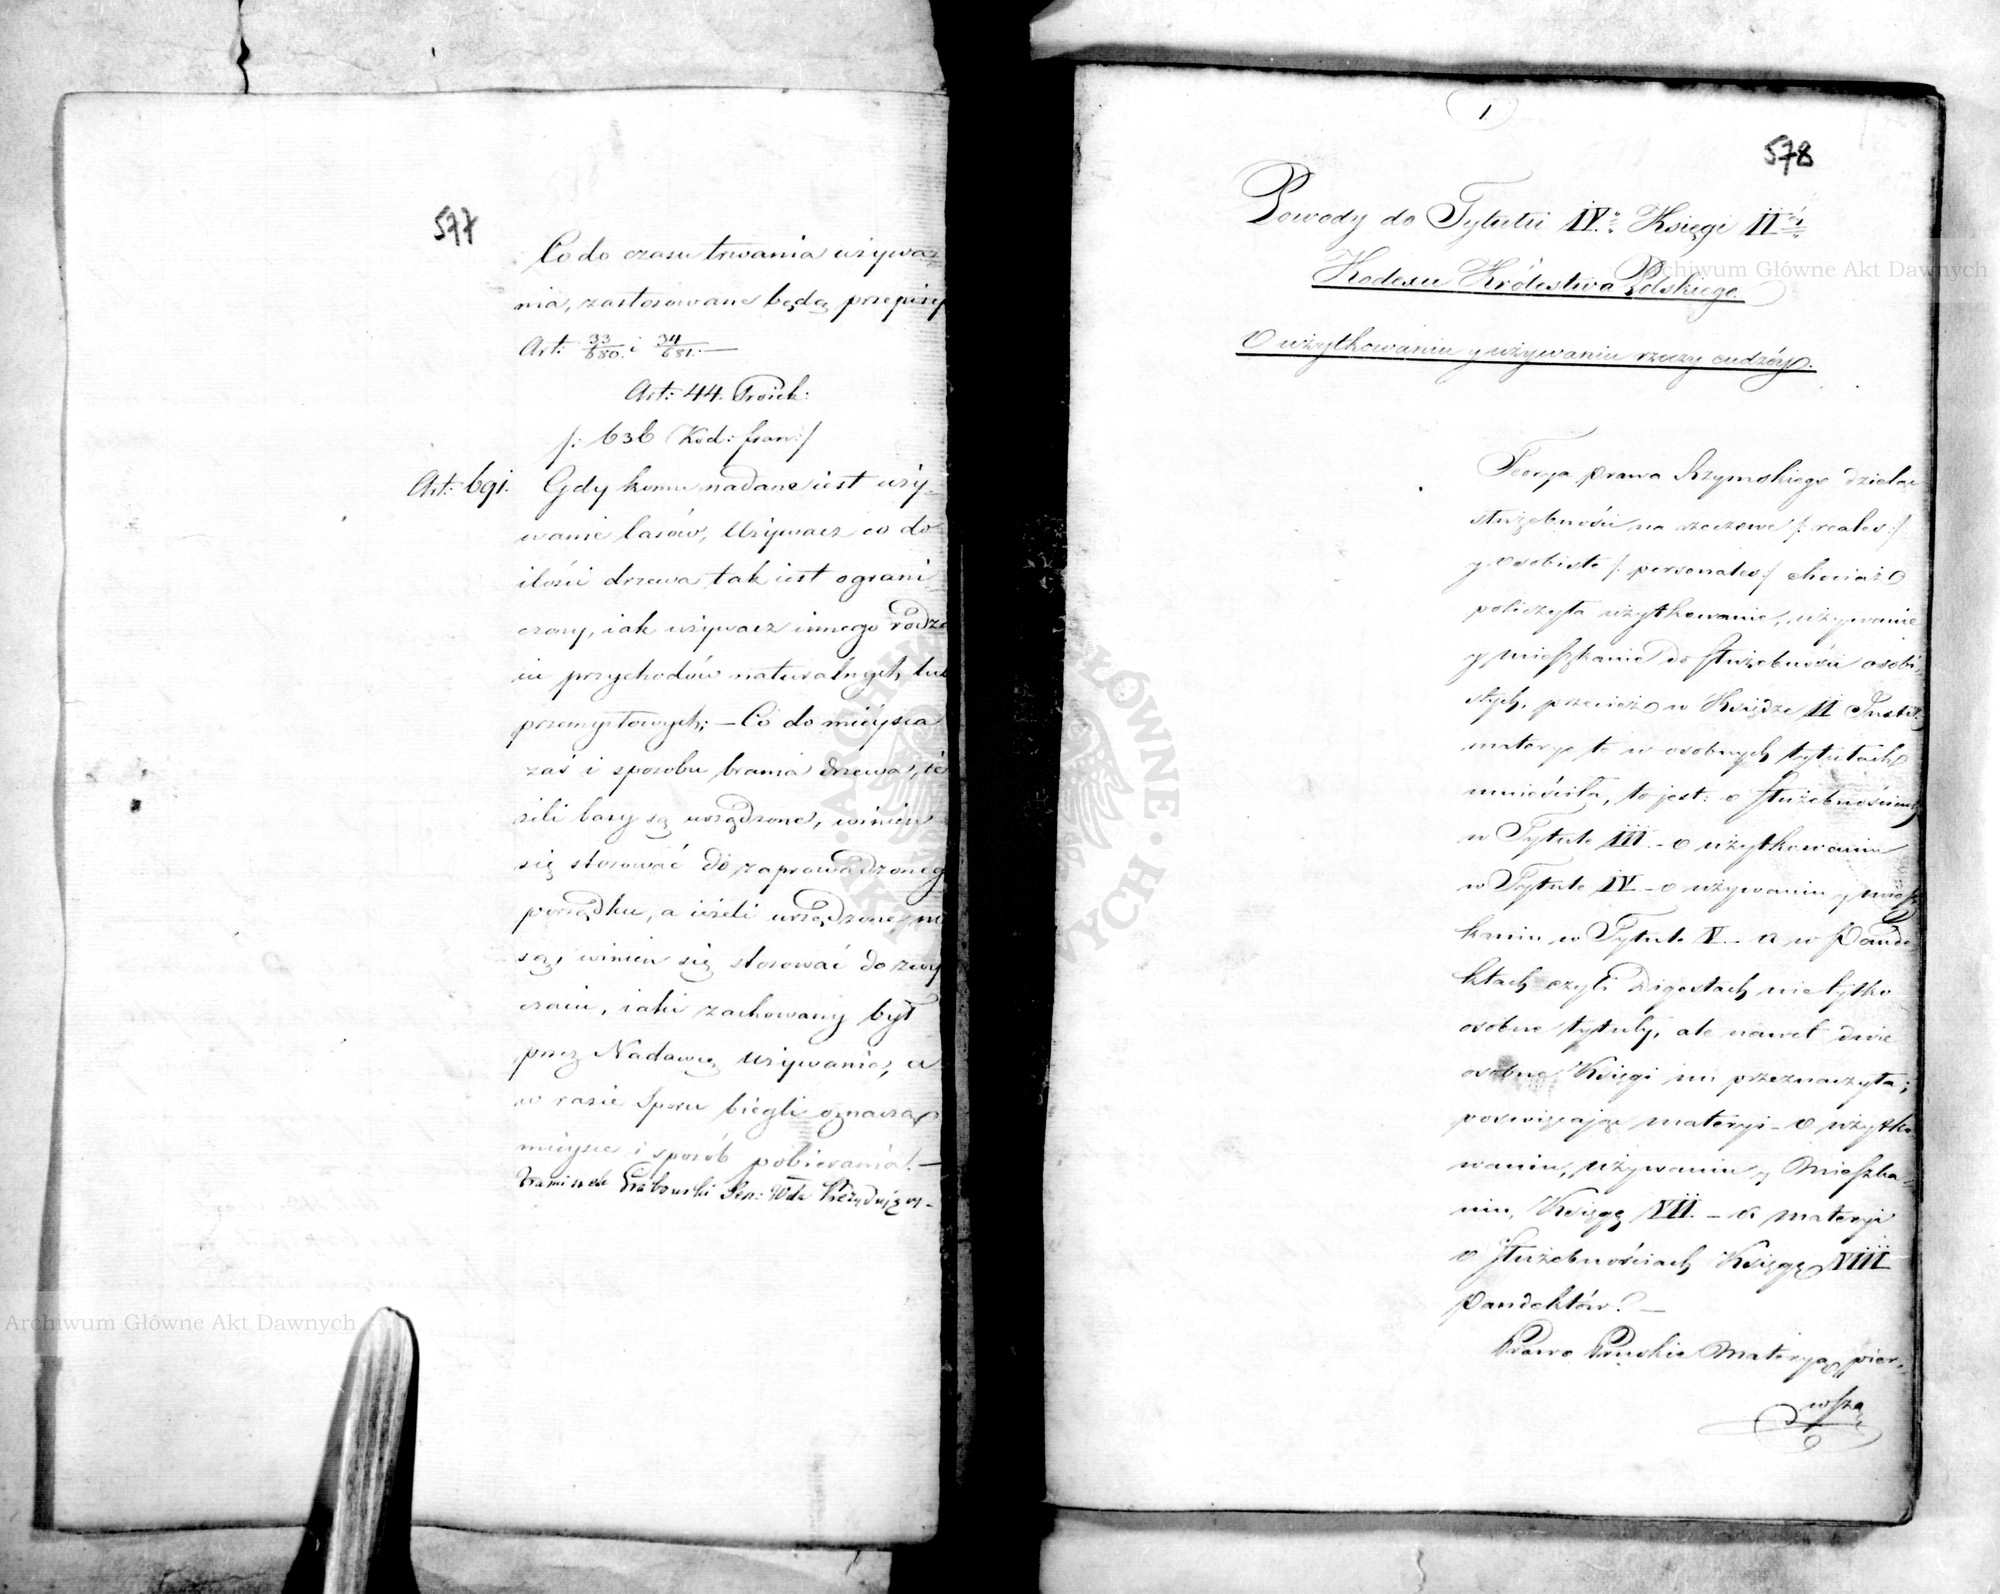 577
Co do czasu trwania używa-
nia, zastosowane będą przepisy
Art: 33/680. i 34/681.—
Art: 44. Proiek:
/: 636 Kod: fran:/
Art: 691. Gdy komu nadane iest uży-
wanie lasów, Używacz co do
ilości drzewa tak iest ograni-
czony, iak używacz innego rodza
iu przychodów naturalnych lub
przemysłowych; — Co do mieysca
zaś i sposobu brania drzewa, ie
żeli lasy są urządzone, winien
się stosować do zaprowadzoneg
porządku, a ieżeli urządzone nie
są, winien się stosować do zwy
czaiu, iaki zachowany był
przez Nadawcę używanie, a
w razie sporu biegli oznaczą
mieysce i sposób pobierania. —
Franciszek Grabowski Sen: Wda Prezyduiący.
1.
578
Powody do Tytułu IV.o Księgi II.éj
Kodexu Królestwa Polskiego.
O użytkowaniu y używaniu rzeczy cudzéy.
Teorya prawa Rzymskiego dzieląc
służebności na rzeczowe /: reales:/
y osobiste /: personales:/ chociaż
policzyła użytkowanie, używanie
y mieszkanie do służebności osobi-
stych, przecież w Księdze II Instit.
materye te w osobnych tytułach
umieściła, to jest: o służebnościach
w Tytule III. – o użytkowaniu
w Tytule IV – o używaniu y miesz
kaniu w Tytule V. – a w Pande-
ktach czyli Digestach nie tylko
osobne tytuły, ale nawet dwie
osobne Księgi im przeznaczyła;
poświęcając materyi – o użytko-
waniu, używaniu y Mieszka-
niu, Księgę VII. – a materyi
o służebnościach Księgę VIII
Pandektów. —
Prawo Pruskie Materyą pier-
wszą
Archiwum Główne Akt Dawnych
Archiwum Główne Akt Dawnych